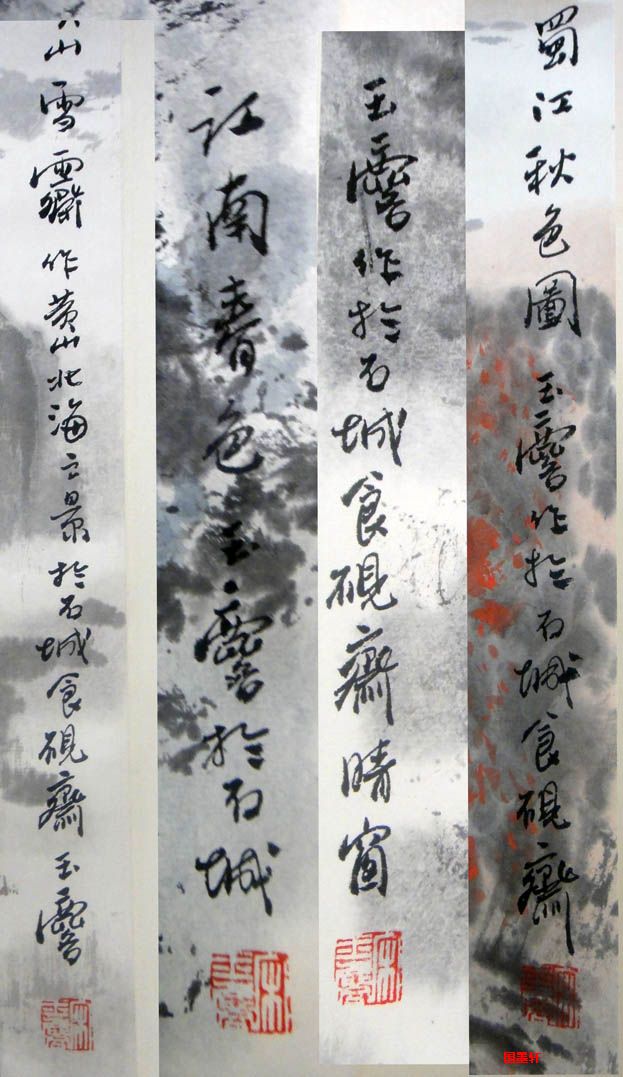 蜀江秋色圖 玉麐作於石城食硯齋
玉麐作於石城食硯齋晴窗
江南春色玉麐於石城
山雪霽 作黄山北海之景於石城食硯齋玉麐
国墨轩